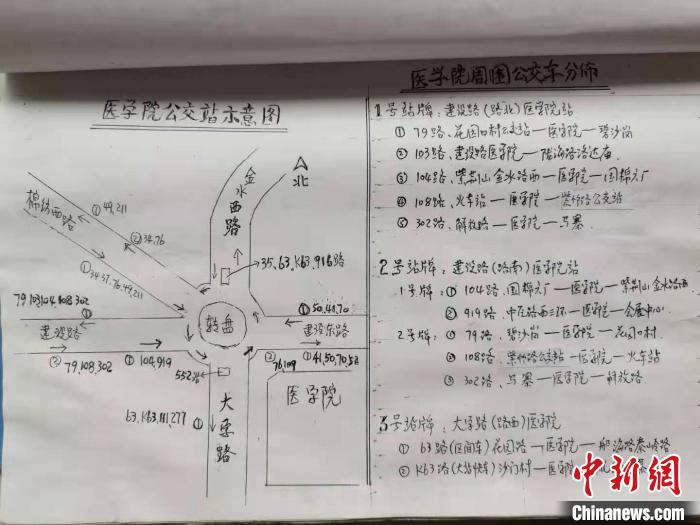 医学院公交站示意图
北
金水西路
棉纺西路
①49,211
②34,76
①34.37.76.49.211
35.63.K63.916路
79.103.104.108.302
转盘
①50.48.70
建设路
建设东路
②79,108,302
①104,919
②76,109
①41,50,70,52
552路
医学院
63.K63.111.277
①
大学路
医学院周围公交车分佈
1号站牌:建设路(路北)医学院站
①79路、花园口村公交站—医学院—碧沙岗
②103路、建设路医学院—陇海路洛达庙
③104路、紫荆山金水路西—医学院—国棉六厂
④108路、火车站—医学院—紫竹路公交站
⑤302路、解放路—医学院—马寨
2号站牌:建设路(路南)医学院站
1号牌:①104路、国棉六厂—医学院—紫荆山金水路西
②919路、中原路西三环—医学院—会展中心
2号牌:①79路、碧沙岗—医学院—花园口村
②108路、紫竹路公交站—医学院—火车站
③302路、马寨—医学院—解放路
3号站牌:大学路(路西)医学院
①63路(区间车)花园路—医学院—航海路秦岭路
②K63路(大站快车)沙门村—医学院
中新网
Chinanews.com